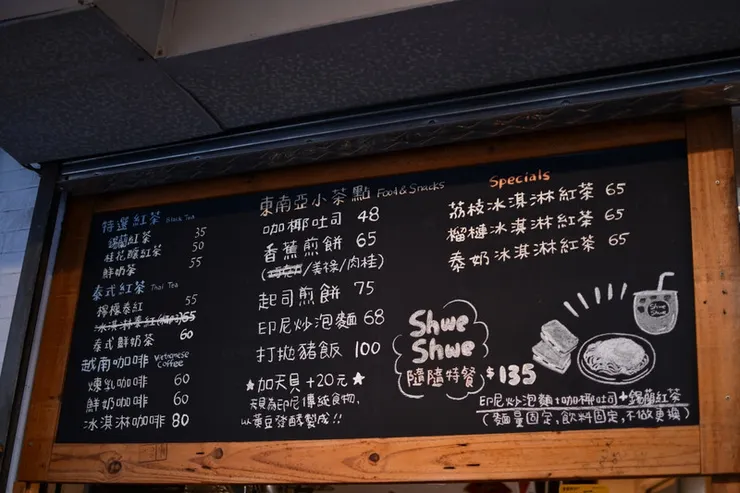 特選紅茶 Black Tea
錫蘭紅茶 35
桂花釀紅茶 50
鮮奶茶 55
泰式紅茶 Thai Tea
檸檬泰紅 55
冰淇淋泰紅(椰)65
泰式鮮奶茶 60
越南咖啡 Vietnamese Coffee
煉乳咖啡 60
鮮奶咖啡 60
冰淇淋咖啡 80
東南亞小茶點 Food & Snacks
咖椰吐司 48
香蕉煎餅 65
(/美祿/肉桂)
起司煎餅 75
印尼炒泡麵 68
打拋豬飯 100
★加天貝+20元★
天貝為印尼傳統食物,
以黃豆發酵製成!!
Specials
荔枝冰淇淋紅茶 65
榴槤冰淇淋紅茶 65
泰奶冰淇淋紅茶 65
Shwe
Shwe
隨隨特餐 $135
印尼炒泡麵+咖椰吐司+錫蘭紅茶
(麵量固定,飲料固定,不做更換)